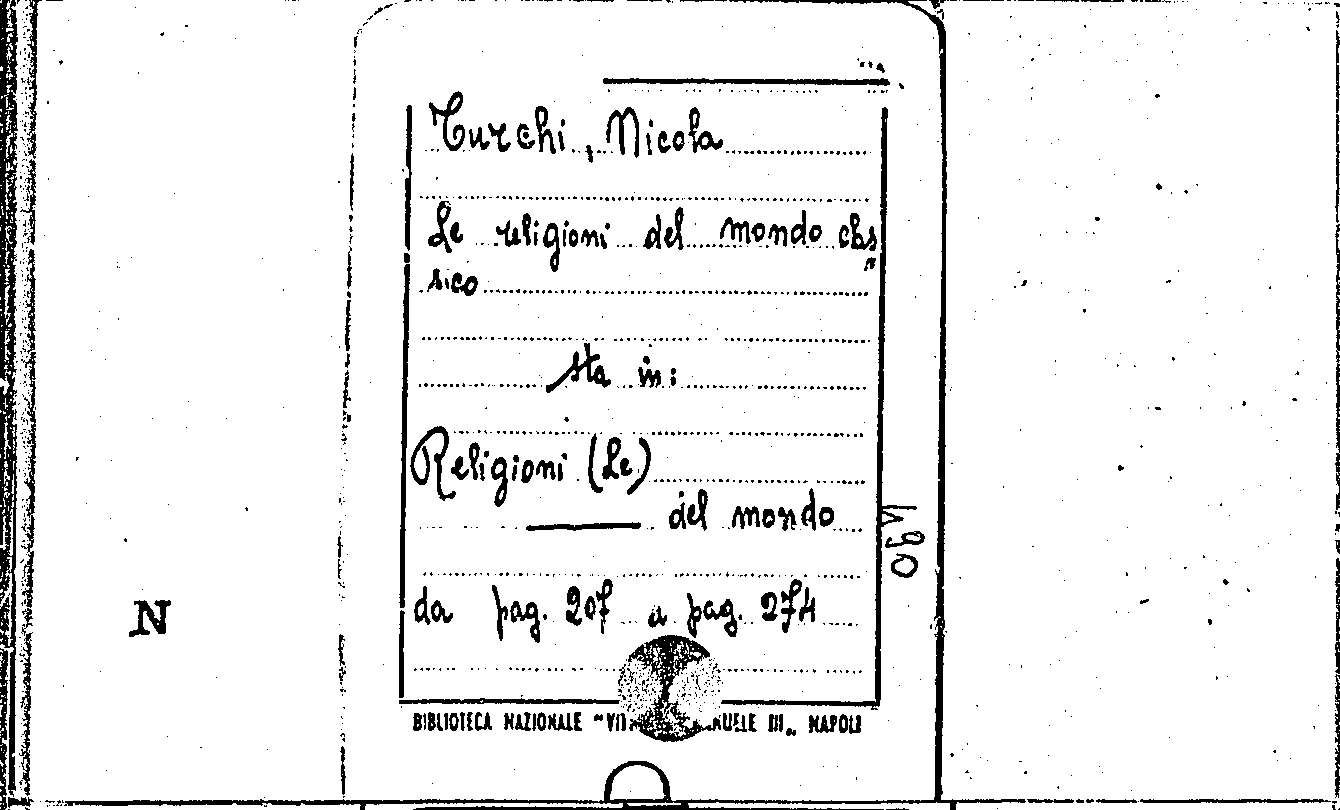 Turchi, Nicola
Le religioni del mondo clas
sico
sta in:
Religioni (Le)
del mondo
da pag. 207 a pag. 274
N
BIBLIOTECA NAZIONALE "VITTORIO EMANUELE III„ NAPOLI